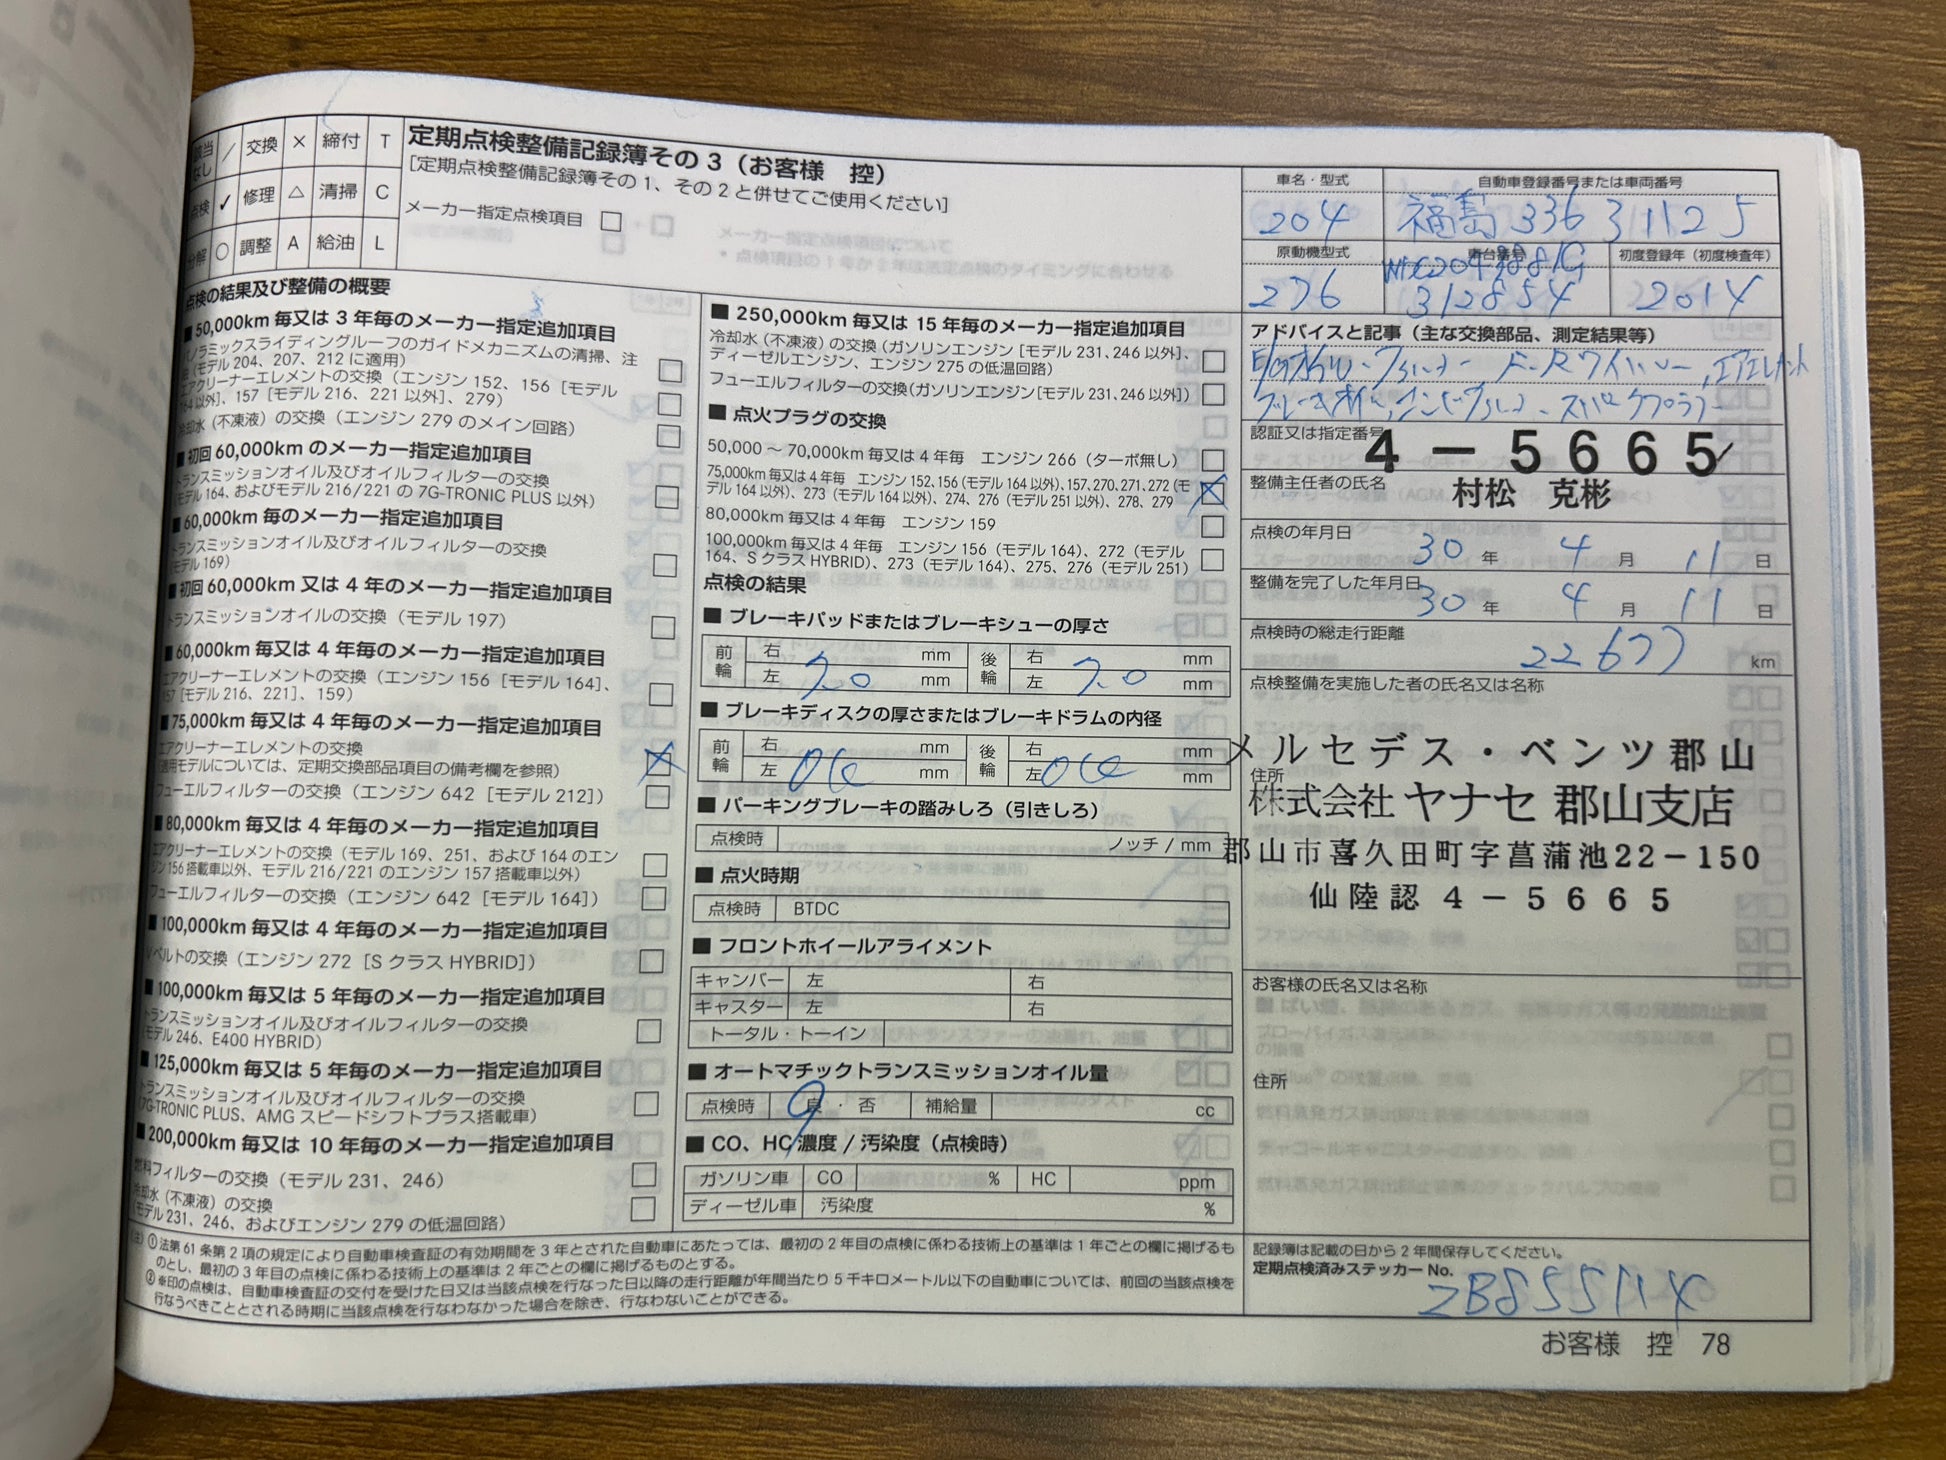 該当なし / 交換 × 締付 T
点検 ✓ 修理 △ 清掃 C
分解 ○ 調整 A 給油 L
定期点検整備記録簿その3（お客様　控）
[定期点検整備記録簿その1、その2と併せてご使用ください]
メーカー指定点検項目 □
点検の結果及び整備の概要
■ 50,000km 毎又は 3 年毎のメーカー指定追加項目
パノラミックスライディングルーフのガイドメカニズムの清掃、注
（モデル 204、207、212 に適用）
エアクリーナーエレメントの交換（エンジン 152、156［モデル
164 以外］、157［モデル 216、221 以外］、279）
冷却水（不凍液）の交換（エンジン 279 のメイン回路）
■ 初回 60,000km のメーカー指定追加項目
トランスミッションオイル及びオイルフィルターの交換
（モデル 164、およびモデル 216/221 の 7G-TRONIC PLUS 以外）
■ 60,000km 毎のメーカー指定追加項目
トランスミッションオイル及びオイルフィルターの交換
（モデル 169）
■ 初回 60,000km 又は 4 年毎のメーカー指定追加項目
トランスミッションオイルの交換（モデル 197）
■ 60,000km 毎又は 4 年毎のメーカー指定追加項目
エアクリーナーエレメントの交換（エンジン 156［モデル 164］、
157［モデル 216、221］、159）
■ 75,000km 毎又は 4 年毎のメーカー指定追加項目
エアクリーナーエレメントの交換
（適用モデルについては、定期交換部品項目の備考欄を参照）
フューエルフィルターの交換（エンジン 642［モデル 212］）
■ 80,000km 毎又は 4 年毎のメーカー指定追加項目
エアクリーナーエレメントの交換（モデル 169、251、および 164 のエン
ジン 156 搭載車以外、モデル 216/221 のエンジン 157 搭載車以外）
フューエルフィルターの交換（エンジン 642［モデル 164］）
■ 100,000km 毎又は 4 年毎のメーカー指定追加項目
Vベルトの交換（エンジン 272［S クラス HYBRID］）
■ 100,000km 毎又は 5 年毎のメーカー指定追加項目
トランスミッションオイル及びオイルフィルターの交換
（モデル 246、E400 HYBRID）
■ 125,000km 毎又は 5 年毎のメーカー指定追加項目
トランスミッションオイル及びオイルフィルターの交換
（7G-TRONIC PLUS、AMG スピードシフトプラス搭載車）
■ 200,000km 毎又は 10 年毎のメーカー指定追加項目
燃料フィルターの交換（モデル 231、246）
冷却水（不凍液）の交換
（モデル 231、246、およびエンジン 279 の低温回路）
■ 250,000km 毎又は 15 年毎のメーカー指定追加項目
冷却水（不凍液）の交換（ガソリンエンジン［モデル 231、246 以外］、
ディーゼルエンジン、エンジン 275 の低温回路）
フューエルフィルターの交換（ガソリンエンジン［モデル 231、246 以外］）
■ 点火プラグの交換
50,000 ～ 70,000km 毎又は 4 年毎　エンジン 266（ターボ無し）
75,000km 毎又は 4 年毎　エンジン 152、156（モデル 164 以外）、157、270、271、272（モ
デル 164 以外）、273（モデル 164 以外）、274、276（モデル 251 以外）、278、279
80,000km 毎又は 4 年毎　エンジン 159
100,000km 毎又は 4 年毎　エンジン 156（モデル 164）、272（モデル
164、S クラス HYBRID）、273（モデル 164）、275、276（モデル 251）
点検の結果
■ ブレーキパッドまたはブレーキシューの厚さ
前輪 右 mm 後輪 右 mm
左 7.0 mm 左 7.0 mm
■ ブレーキディスクの厚さまたはブレーキドラムの内径
前輪 右 mm 後輪 右 mm
左 OK mm 左 OK mm
■ パーキングブレーキの踏みしろ（引きしろ）
点検時 ノッチ / mm
■ 点火時期
点検時 BTDC
■ フロントホイールアライメント
キャンバー 左 右
キャスター 左 右
トータル・トーイン
■ オートマチックトランスミッションオイル量
点検時 良・否 補給量 cc
■ CO、HC 濃度 / 汚染度（点検時）
ガソリン車 CO % HC ppm
ディーゼル車 汚染度 %
車名・型式 自動車登録番号または車両番号
204 福島 336 ろ 1125
原動機型式 車台番号 初度登録年（初度検査年）
276 WDC2049881G312854 2014
アドバイスと記事（主な交換部品、測定結果等）
認証又は指定番号
4－5665
整備主任者の氏名
村松　克彬
点検の年月日 30 年 4 月 11 日
整備を完了した年月日 30 年 4 月 11 日
点検時の総走行距離
22677 km
点検整備を実施した者の氏名又は名称
メルセデス・ベンツ郡山
住所
株式会社 ヤナセ 郡山支店
郡山市喜久田町字菖蒲池22－150
仙陸認 4－5665
お客様の氏名又は名称
住所
記録簿は記載の日から 2 年間保存してください。
定期点検済みステッカー No.
（注）① 法第 61 条第 2 項の規定により自動車検査証の有効期間を 3 年とされた自動車にあたっては、最初の 2 年目の点検に係わる技術上の基準は 1 年ごとの欄に掲げるも
のとし、最初の 3 年目の点検に係わる技術上の基準は 2 年ごとの欄に掲げるものとする。
② ※印の点検は、自動車検査証の交付を受けた日又は当該点検を行なった日以降の走行距離が年間当たり 5 千キロメートル以下の自動車については、前回の当該点検を
行なうべきこととされる時期に当該点検を行なわなかった場合を除き、行なわないことができる。
お客様　控　78